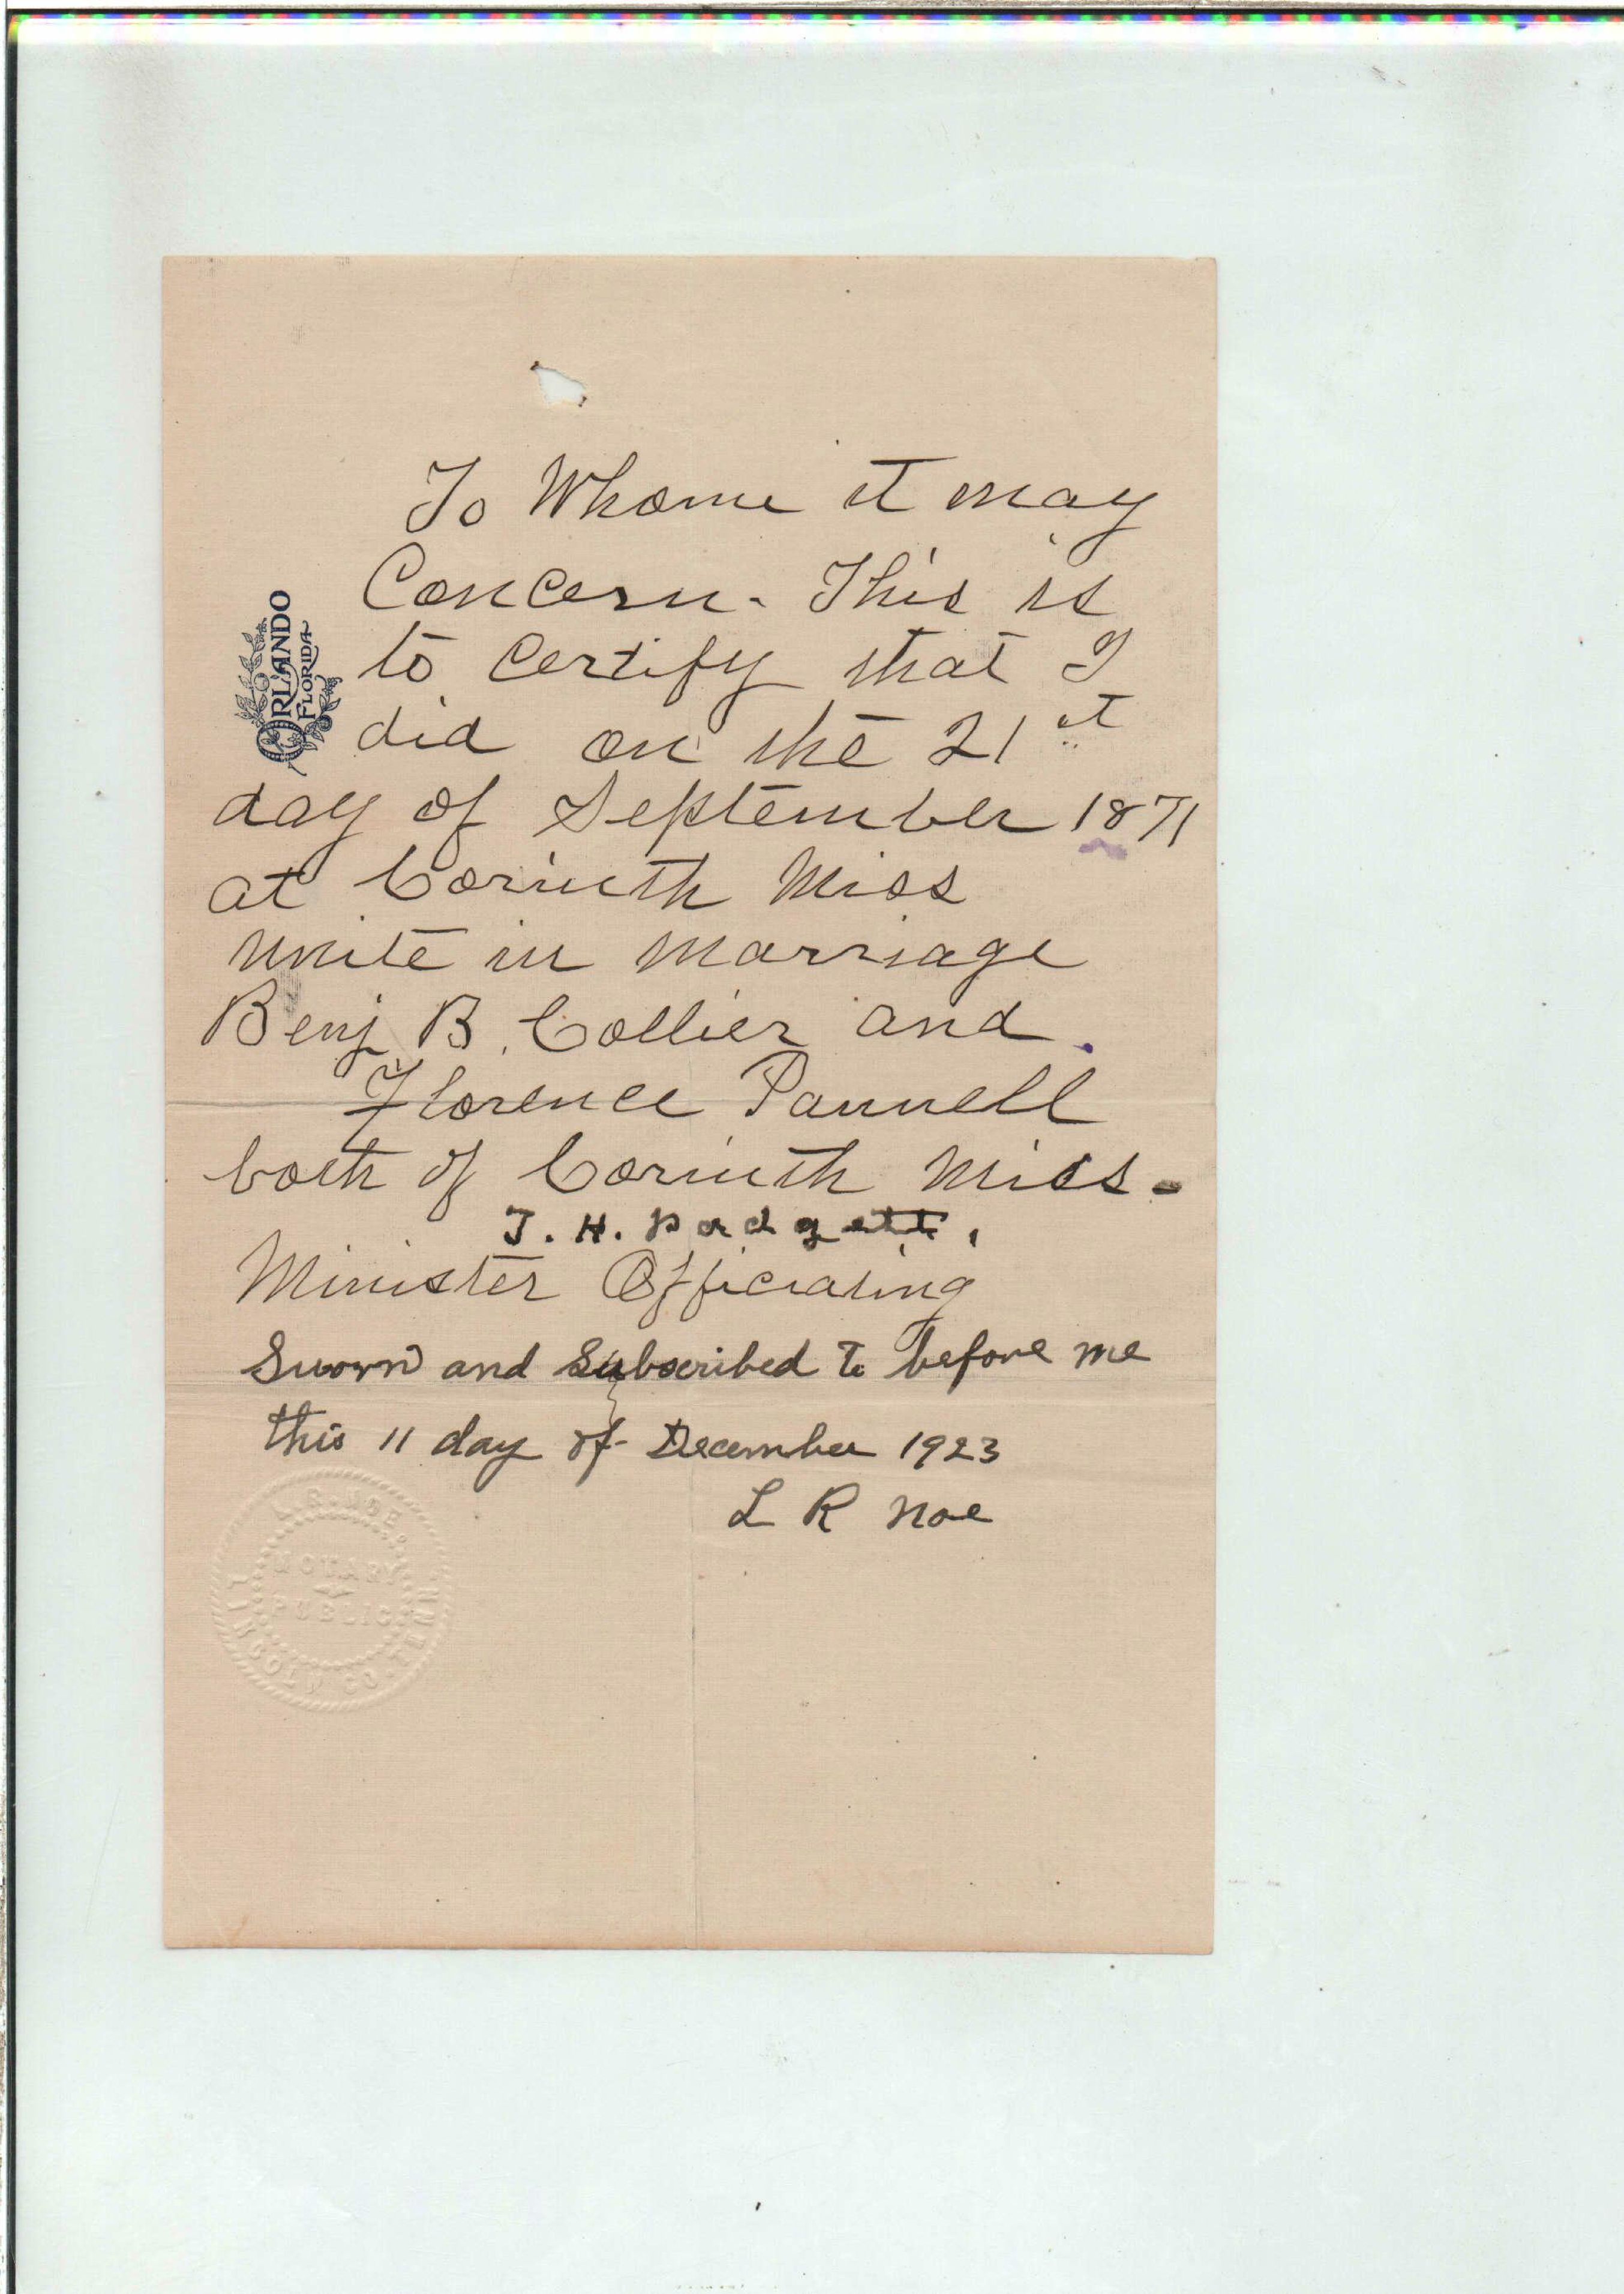 To Whome it may
Concern. This is
to Certify that I
did on the 21st
day of September 1871
at Corinth Miss
Unite in Marriage
Benj B. Collier and
Florence Pannell
both of Corinth Miss.
J. H. Padgett.
Minister Officiating
Sworn and Subscribed to before me
this 11 day of December 1923
L R Noe
ORLANDO
FLORIDA
L. R. NOE
NOTARY
PUBLIC
LINCOLN CO. TENN.